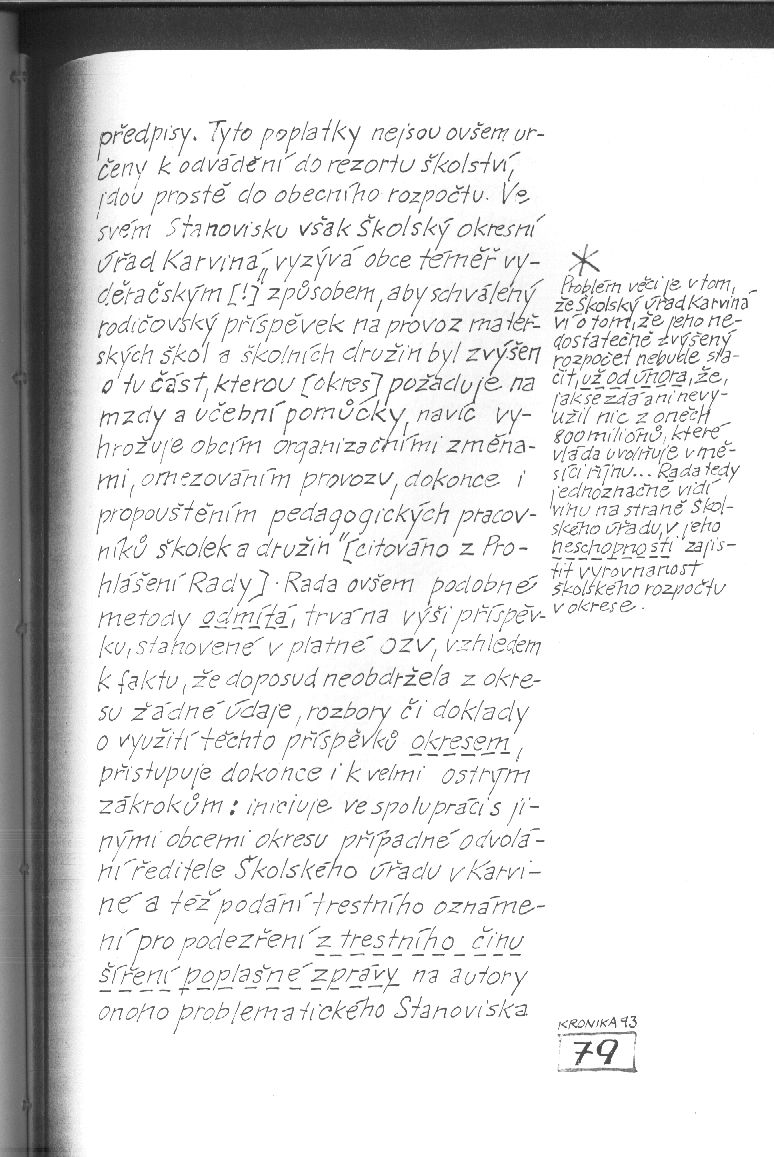 předpisy. Tyto poplatky nejsou ovšem ur-
čeny k odvádění do rezortu školství,
jdou prostě do obecního rozpočtu. Ve
svém Stanovisku však Školský okresní
úřad Karviná „vyzývá obce téměř vy-
děračským [!] způsobem, aby schválený
rodičovský příspěvek na provoz mateř-
ských škol a školních družin byl zvýšen
o tu část, kterou [okres] požaduje na
mzdy a učební pomůcky, navíc vy-
hrožuje obcím organizačními změna-
mi, omezováním provozu, dokonce i
propouštěním pedagogických pracov-
níků školek a družin" [citováno z Pro-
hlášení Rady]. Rada ovšem podobné
metody odmítá, trvá na výši příspěv-
ku, stanovené v platné OZV, vzhledem
k faktu, že doposud neobdržela z okre-
su žádné údaje, rozbory či doklady
o využití těchto příspěvků okresem,
přistupuje dokonce i k velmi ostrým
zákrokům: iniciuje ve spolupráci s ji-
nými obcemi okresu případné odvolá-
ní ředitele Školského úřadu v Karvi-
né a též podání trestního oznáme-
ní pro podezření z trestního činu
šíření poplašné zprávy na autory
onoho problematického Stanoviska
*
Problém věci je v tom,
že Školský úřad Karviná
ví o tom, že jeho ne-
dostatečně zvýšený
rozpočet nebude sta-
čit, už od února, že,
jak se zdá ani nevy-
užil nic z oněch
800 miliónů, které
vláda uvolňuje v mě-
síci říjnu... Rada tedy
jednoznačně vidí
vinu na straně Škol-
ského úřadu, v jeho
neschopnosti zajis-
tit vyrovnanost
školského rozpočtu
v okrese.
KRONIKA 93
79